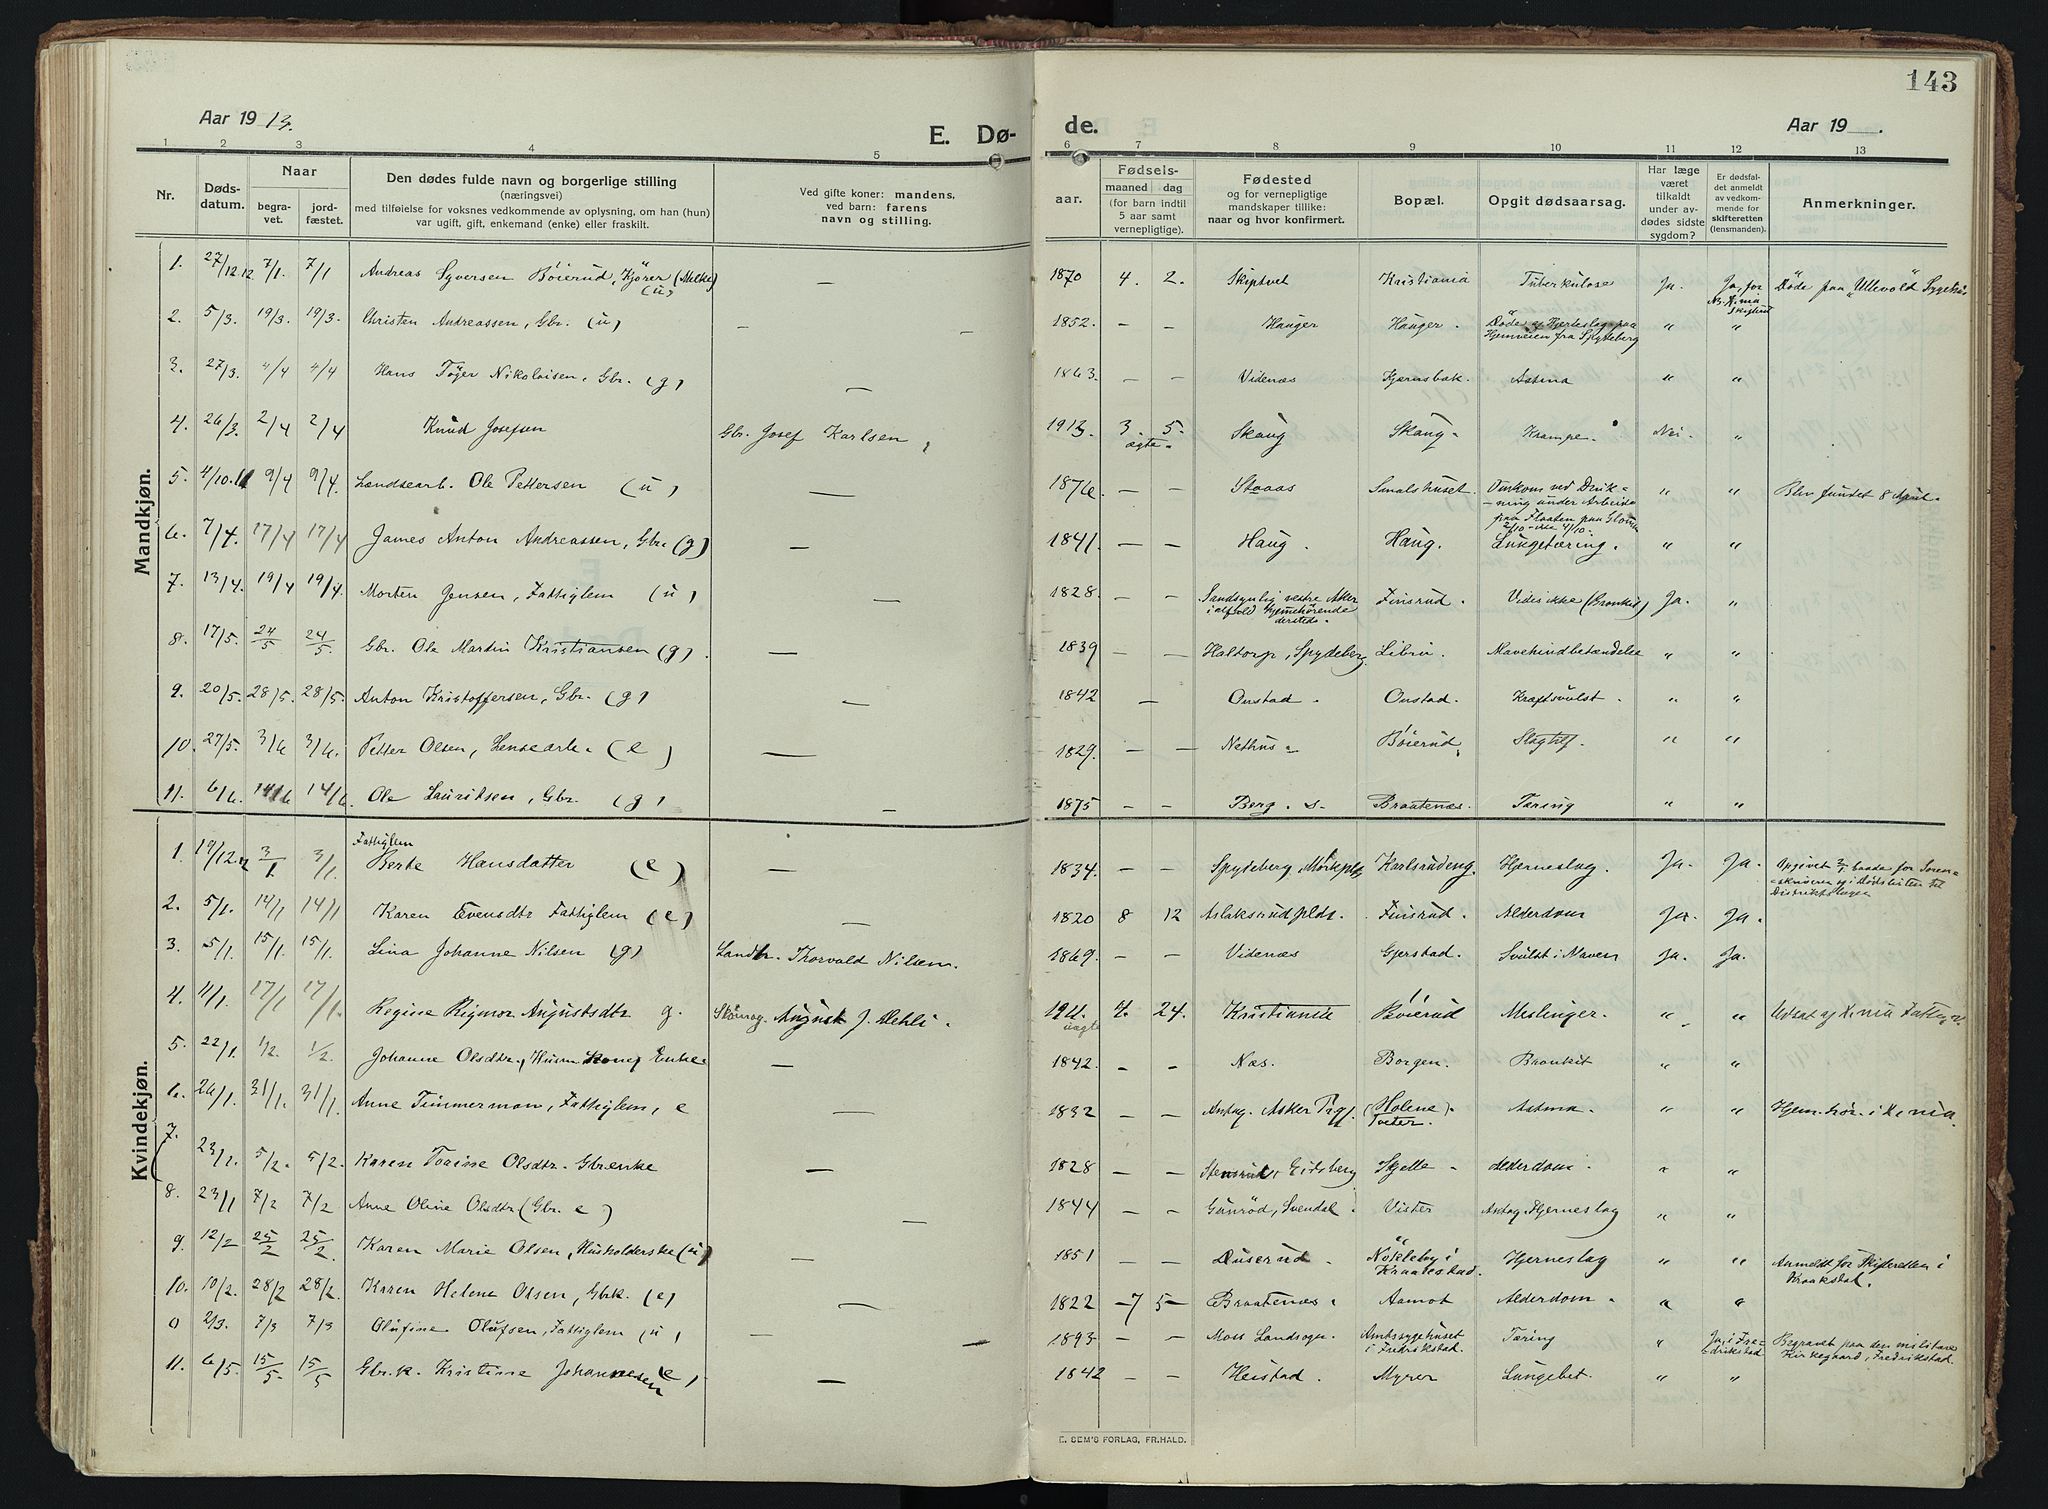 143
Aar 1913.
E. Dø-
de.
Aar 19 .
1 2 3 4 5 6 7 8 9 10 11 12 13
Nr.
Døds-
datum.
Naar
begra-
vet.
jord-
fæstet.
Den dødes fulde navn og borgerlige stilling
(næringsvei)
med tilføielse for voksnes vedkommende av oplysning, om han (hun)
var ugift, gift, enkemand (enke) eller fraskilt.
Ved gifte koner: mandens,
ved barn: farens
navn og stilling.
aar.
Fødsels-
maaned dag
(for barn indtil
5 aar samt
vernepligtige).
Fødested
og for vernepligtige
mandskaper tillike:
naar og hvor konfirmert.
Bopæl.
Opgit dødsaarsag.
Har læge
været
tilkaldt
under av-
dødes sidste
sygdom?
Er dødsfal-
det anmeldt
av vedkom-
mende for
skifteretten
(lensmanden).
Anmerkninger.
Mandkjøn.
1. 27/12 12 7/1. 7/1 Andreas Syversen Böierud, Kjörer (Melke) (u) — 1870 4. 2. Skiptvet Kristiania Tuberkulose Ja. Ja, for Döde paa "Ullevold" Sygehus
2. 5/3. 19/3. 19/3. Christen Andreassen, Gbr. (u) — 1852. — — Hauger Hauger. Döde av Hjerteslag paa Hjemveien fra Spydeberg " "
3. 27/3. 4/4 4/4 Hans Töger Nikolaisen, Gbr. (g) — 1863. — — Videnæs Kjærnsbæk. Astma " "
4. 26/3. 2/4 2/4 Knud Josefsen Gbr. Josef Karlsen, 1913. 3. 5. ægte. Skaug Skaug. Krampe. Nei. "
5. 4/10. 11 9/4 9/4. Lændsearb. Ole Pettersen (u) — 1876. — — Staaas Smalshuset. Omkom ved Druk- -ning under Arbeide paa Flaaten paa Glommen 2/10 - ikke 4/10. " " Blev fundet 8 April.
6. 7/4. 17/4 17/4 James Anton Andreassen, Gbr. (g) — 1841. — — Haug. Haug. Lungetæring. " "
7. 13/4. 19/4 19/4 Morten Jensen, Fattiglem (u) — 1828. — — Sandsynlig vestre Aker i alfold hjemhörende dersteds. Finsrud. Vides ikke (Bronkit) Ja. "
8. 17/5. 24/5 24/5. Gbr. Ole Martin Kristiansen (g). — 1839 — — Haltorp, Spydeberg Libru. Mavehindbetændelse " "
9. 20/5. 28/5. 28/5. Anton Kristoffersen, Gbr. (g) — 1842 — Onstad. Onstad. Kræftsvulst. " "
10. 27/5. 3/6 3/6. Petter Olsen, Lensearb. (e) — 1829. — — Nethus. Böierud, Slagtif. " "
11. 6/6. 14/6 14/6. Ole Lauritsen, Gbr. (g) — 1875 — — Berg. s. Braatenæs. Tæring " "
Kvindekjøn.
1. 19/12. 12 3/1 3/1. Fattiglem Berte Hansdatter (e) — 1834. — — Spydeberg, Mörkplds Karlsrudeng. Hjerneslag. Ja. Ja. Opgivet 3/1 baade for Soren- -skriveren og i Dödslisten til Distriktslægen
2. 5/1. 14/1 14/1 Karen Evensdtr Fattiglem (e) — 1820 8 12 Aslaksrud plds. Finsrud. Alderdom Ja. Ja.
3. 5/1. 15/1. 15/1. Lina Johanne Nilsen (g) Landh. Thorvald Nilsen. 1869. — — Videnæs Gjerstad. Svulst i Maven Ja. Ja.
4. 4/1. 17/1 17/1. Regine Rigmor Augustsdtr g. Skömag. August J. Mehli. 1911. 4. 24. uægte Kristiania Böierud Meslinger. " " Udsat af K.nia Fattigv.
5. 22/1. 1/2. 1/2. Johanne Olsdtr., Husm Enke — 1842. — — Næs. Borgen. Bronkit " "
6. 26/1. 31/1. 31/1. Anne Timmerman, Fattiglem, e — 1832 — — Antag. Asker Prgj. (Holene). Tveter. Astma. " " Hjem.hör. i K.nia.
7. 23/1. 5/2. 5/2. Karen Torine Olsdtr. Gbrenke — 1828 — — Stensrud, Eidsberg Skjelle. Alderdom. " "
8. 23/1 7/2 7/2 Anne Oline Olsdtr (Gbr. e) — 1844 — — Gunröd, Svendal. Vister Antag. Hjerneslag " "
9. 12/2 25/2 25/2. Karen Marie Olsen, Husholderske (u) — 1851 — — Duserud. Nökleby i Kraakestad. Hjerneslag " " Anmeldt for Skifteretten i Kraakstad.
10. 10/2. 28/2 28/2. Karen Helene Olsen, Gbrk. (e) — 1822 7 5 Braatenæs. Aamot Alderdom. " "
0 2/3. 7/3 7/3 Olufine Olufsen, Fattiglem (u) — 1893 — — Moss Landsogn. Amtssygehuset i Fredrikstad. Tæring " Ja, i Fre- drikstad Begravet paa den militære Kirkegaard, Fredrikstad.
11. 6/5. 15/5. 15/5 Gbr.k. Kristine Johannesen (e) — 1842 — — Heistad. Myrer Lungebet. " "
E. SEM'S FORLAG, FR.HALD.